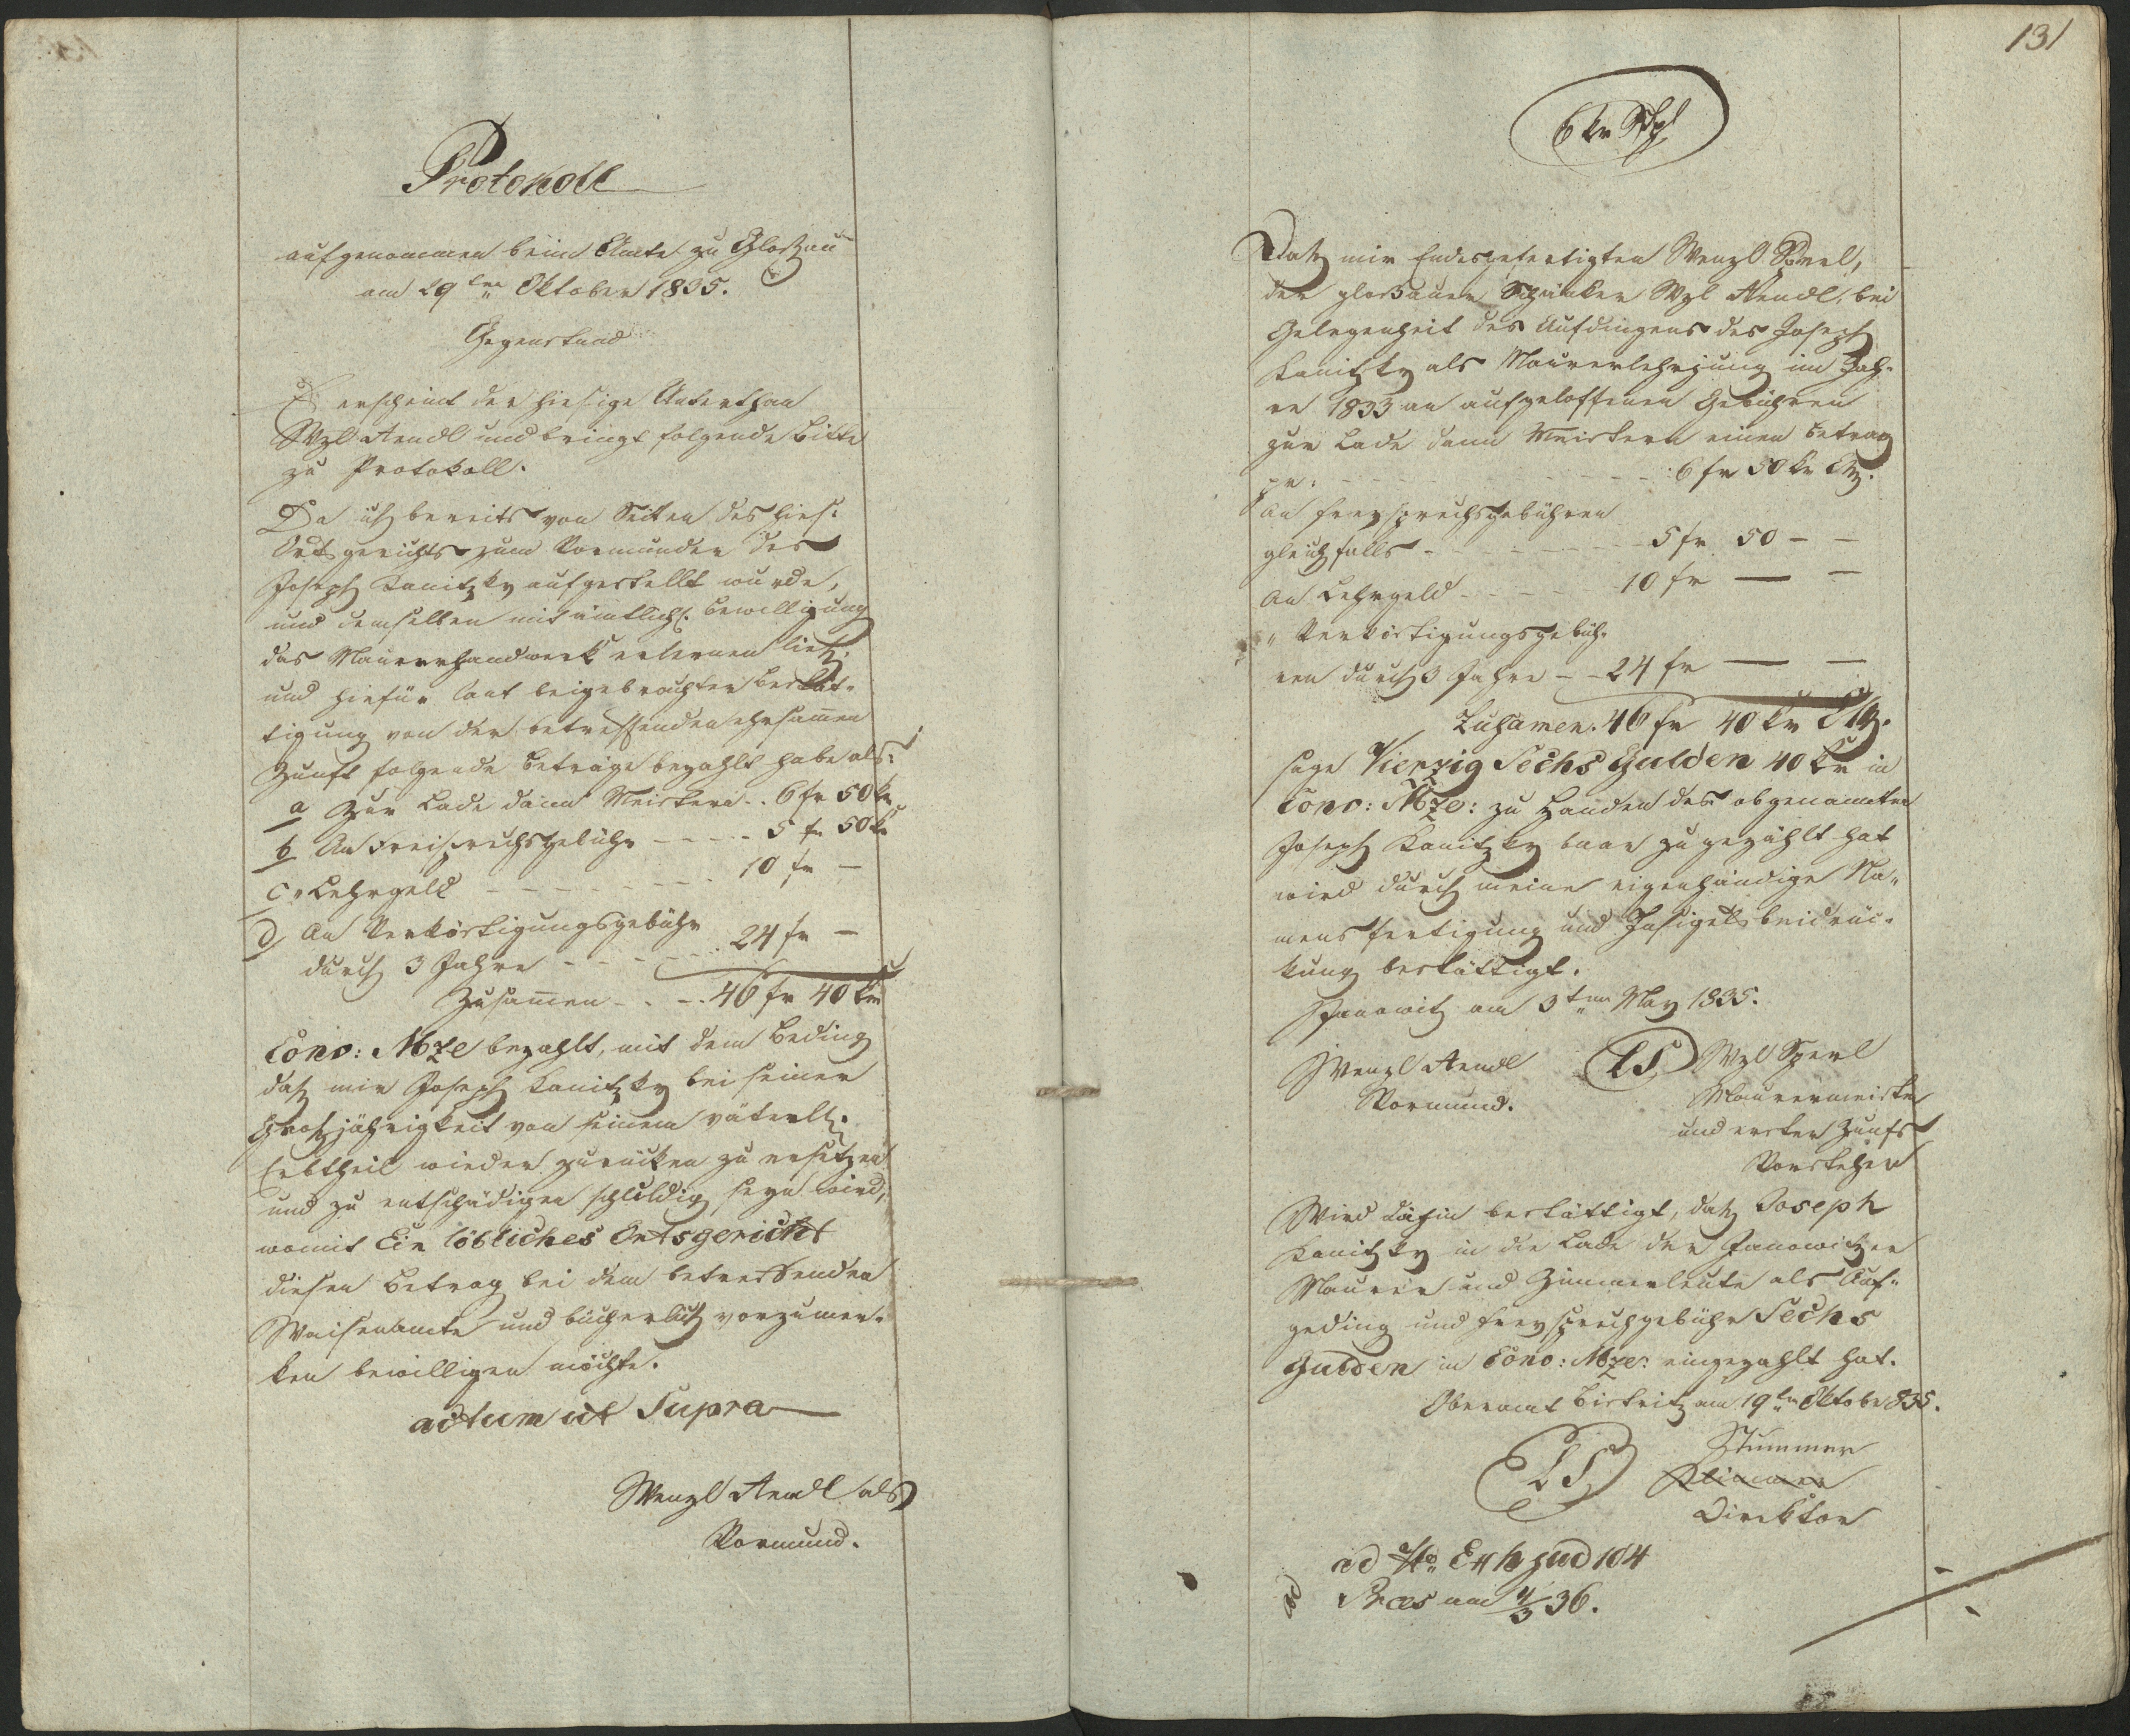 Protokoll
aufgenommen beim Amte zu Glosau
am 29ten Oktober 1835.
Gegenstand
Es erscheint der hiesige Unterthan
Wzl Aendl und bringt folgende Bitte
zu Protokoll.
Da ich bereits von Seiten des hies:
Ortsgerichts zum Vormunder des
Joseph Kanitzky aufgestellt wurde,
und demselben mit ämtlich: Bewilligung
das Maurerhandwerk erlernen ließ,
und hiefür laut beigebrachter Bestät-
tigung von der betreffenden ehrsamen
Zunft folgende Beträge bezahlt habe als:
a Zur Lade dann Meistern .. 6 fr 50 kr
b An Freisprechsgebühr - - - - 5 fr 50 kr
c " Lehrgeld - - - - - - - - 10 fr —
d An Verköstigungsgebühr
durch 3 Jahre - - - - - - 24 fr —
Zusamen - . - . 46 fr 40 kr
Conv: Mze bezahlt, mit dem Beding
daß mir Joseph Kanitzky bei seiner
Großjährigkeit von seinem väterl:
Erbtheil wieder zurücken zu ersetzen
und zu entschädigen schuldig seyn wird,
womit Ein löbliches Ortsgericht
diesen Betrag bei dem betreffenden
Waisenamte und bücherlich vorzumer-
ken bewilligen möchte.
actum ut Supra
Wenzl Aendl als
Vormund.
131
6 kr Stpl
Daß mir Endesgefertigten Wenzl Sperl,
der glosauer Schänker Wzl Aendl, bei
Gelegenheit des Aufdingens des Joseph
Kanitzky als Maurerlehrjung im Jah-
re 1833 an aufgeloffenen Gebühren
zur Lade dann Meistern einen Betrag
pr: - - - - - - - - - - 6 fr 50 kr CMz.
An Freysprechsgebühren
gleichfalls - - - - - - - 5 fr 50 — —
An Lehrgeld - - - - - 10 fr — —
" Verköstigungsgebüh-
ren durch 3 Jahre - - 24 fr — —
Zusamen. 46 fr 40 kr CMz.
sage Vierzig Sechs Gulden 40 kr in
Conv: Mze: zu Handen des obgenannten
Joseph Kanitzky baar zugezählt hat
wird durch meine eigenhändige Na-
mensfertigung und Insigels beidrüc-
kung bestättigt.
Janowitz am 3ten May 1835.
Wenzl Aendl
Vormund.
LS
Wzl Sperl
Maurermeister
und erster Zunfts
Vorsteher
Wird dahin bestättigt, daß Joseph
Kanitzky in die Lade der Janowitzer
Maurer und Zimmerleute als Auf-
geding und Freysprechgebühr Sechs
Gulden in Conv: Mze: eingezahlt hat.
Oberamt Bistritz am 19ten Oktober 835.
LS
Stummer
Direktor
ad No Exh jud 104
Præs am 4/3 36.